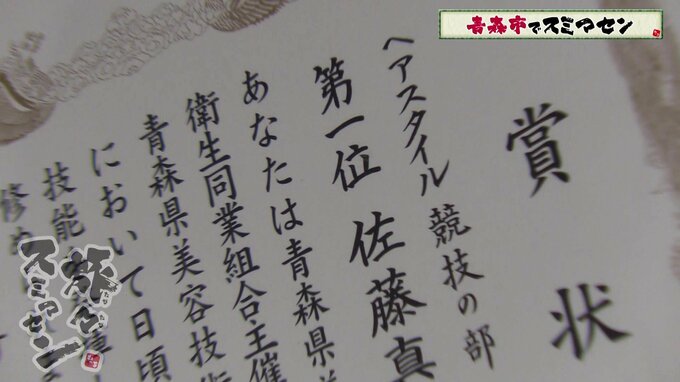 青森市でスミマセン
賞状
ヘアスタイル競技の部
第一位 佐藤真
あなたは青森県美
衛生同業組合主催
青森県美容技術
において日頃
技能
修め
旅でスミマセン